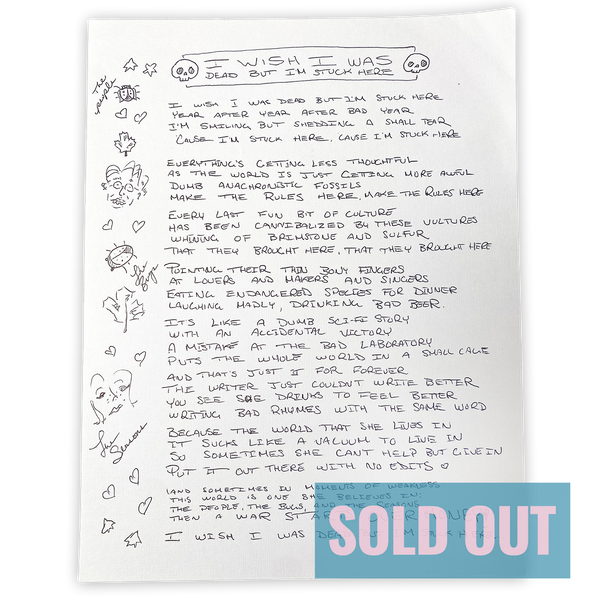 I WISH I WAS
DEAD BUT I'M STUCK HERE
The people
I WISH I WAS DEAD BUT I'M STUCK HERE
YEAR AFTER YEAR AFTER BAD YEAR
I'M SMILING BUT SHEDDING A SMALL TEAR
'CAUSE I'M STUCK HERE, CAUSE I'M STUCK HERE
EVERYTHING'S GETTING LESS THOUGHTFUL
AS THE WORLD IS JUST GETTING MORE AWFUL
DUMB ANACHRONISTIC FOSSILS
MAKE THE RULES HERE, MAKE THE RULES HERE
EVERY LAST FUN BIT OF CULTURE
HAS BEEN CANNIBALIZED BY THESE VULTURES
WHINING OF BRIMSTONE AND SULFUR
THAT THEY BROUGHT HERE, THAT THEY BROUGHT HERE
the Bugs
POINTING THEIR THIN BONY FINGERS
AT LOVERS AND MAKERS AND SINGERS
EATING ENDANGERED SPECIES FOR DINNER
LAUGHING MADLY, DRINKING BAD BEER.
IT'S LIKE A DUMB SCI-FI STORY
WITH AN ACCIDENTAL VICTORY
A MISTAKE AT THE BAD LABORATORY
PUTS THE WHOLE WORLD IN A SMALL CAGE
AND THAT'S JUST IT FOR FOREVER
THE WRITER JUST COULDN'T WRITE BETTER
YOU SEE SHE DRINKS TO FEEL BETTER
WRITING BAD RHYMES WITH THE SAME WORD
the Seasons
BECAUSE THE WORLD THAT SHE LIVES IN
IT SUCKS LIKE A VACUUM TO LIVE IN
SO SOMETIMES SHE CAN'T HELP BUT GIVE IN
PUT IT OUT THERE WITH NO EDITS
(AND SOMETIMES IN MOMENTS OF WEAKNESS
THIS WORLD IS ONE SHE BELIEVED IN:
THE PEOPLE, THE BUGS, AND THE SEASONS
THEN A WAR STARTS
I WISH I WAS DEAD BUT I'M STUCK HERE
SOLD OUT